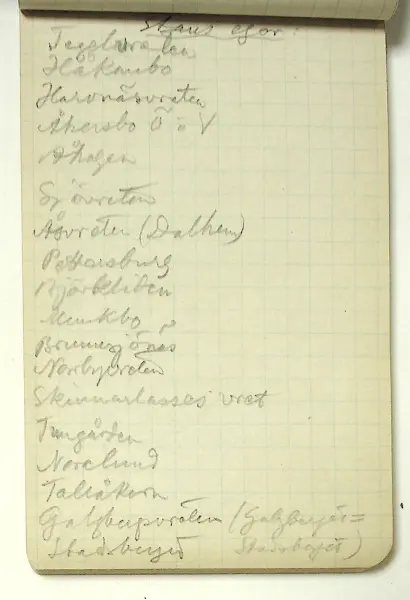 Stads egor:
Teglvreten
Håkanbo
Harvnäsvreten
Åkersbo Ö o V
Åhagen
Sjövreten
Åsvreten (Dalhem)
Pettersburg
Björkliden
Munkbo
Brunnsjönäs
Norbyvreten
Skinnarlasses vret
Tungården
Norelund
Tallåkern
Galgbergsvreten (Galgberget=
Stadsberget Stadsberget)